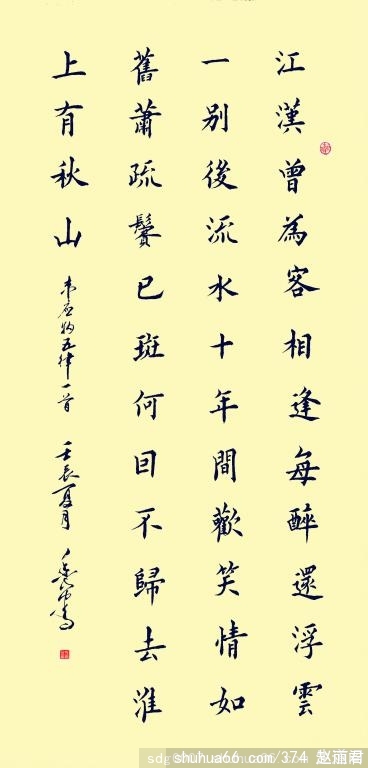 江漢曾為客相逢每醉還浮雲
一別後流水十年間歡笑情如
舊蕭疏鬢已斑何囙不歸去淮
上有秋山 韋應物五律一首 壬辰夏月
shuhua66 com/374 赵丽君